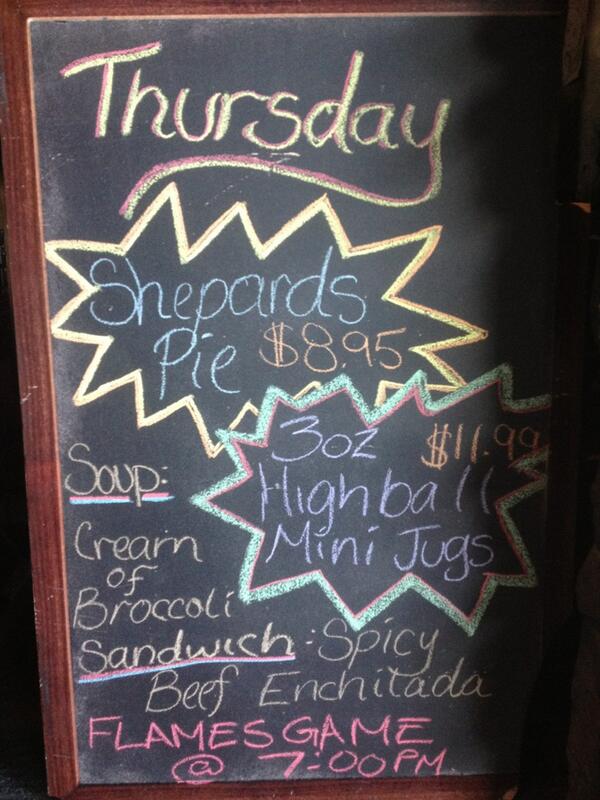 Thursday
Shepards
Pie $8.95
3oz $11.99
Highball
Mini Jugs
Soup:
Cream
of
Broccoli
Sandwich: Spicy
Beef Enchilada
FLAMES GAME
@ 7:00PM